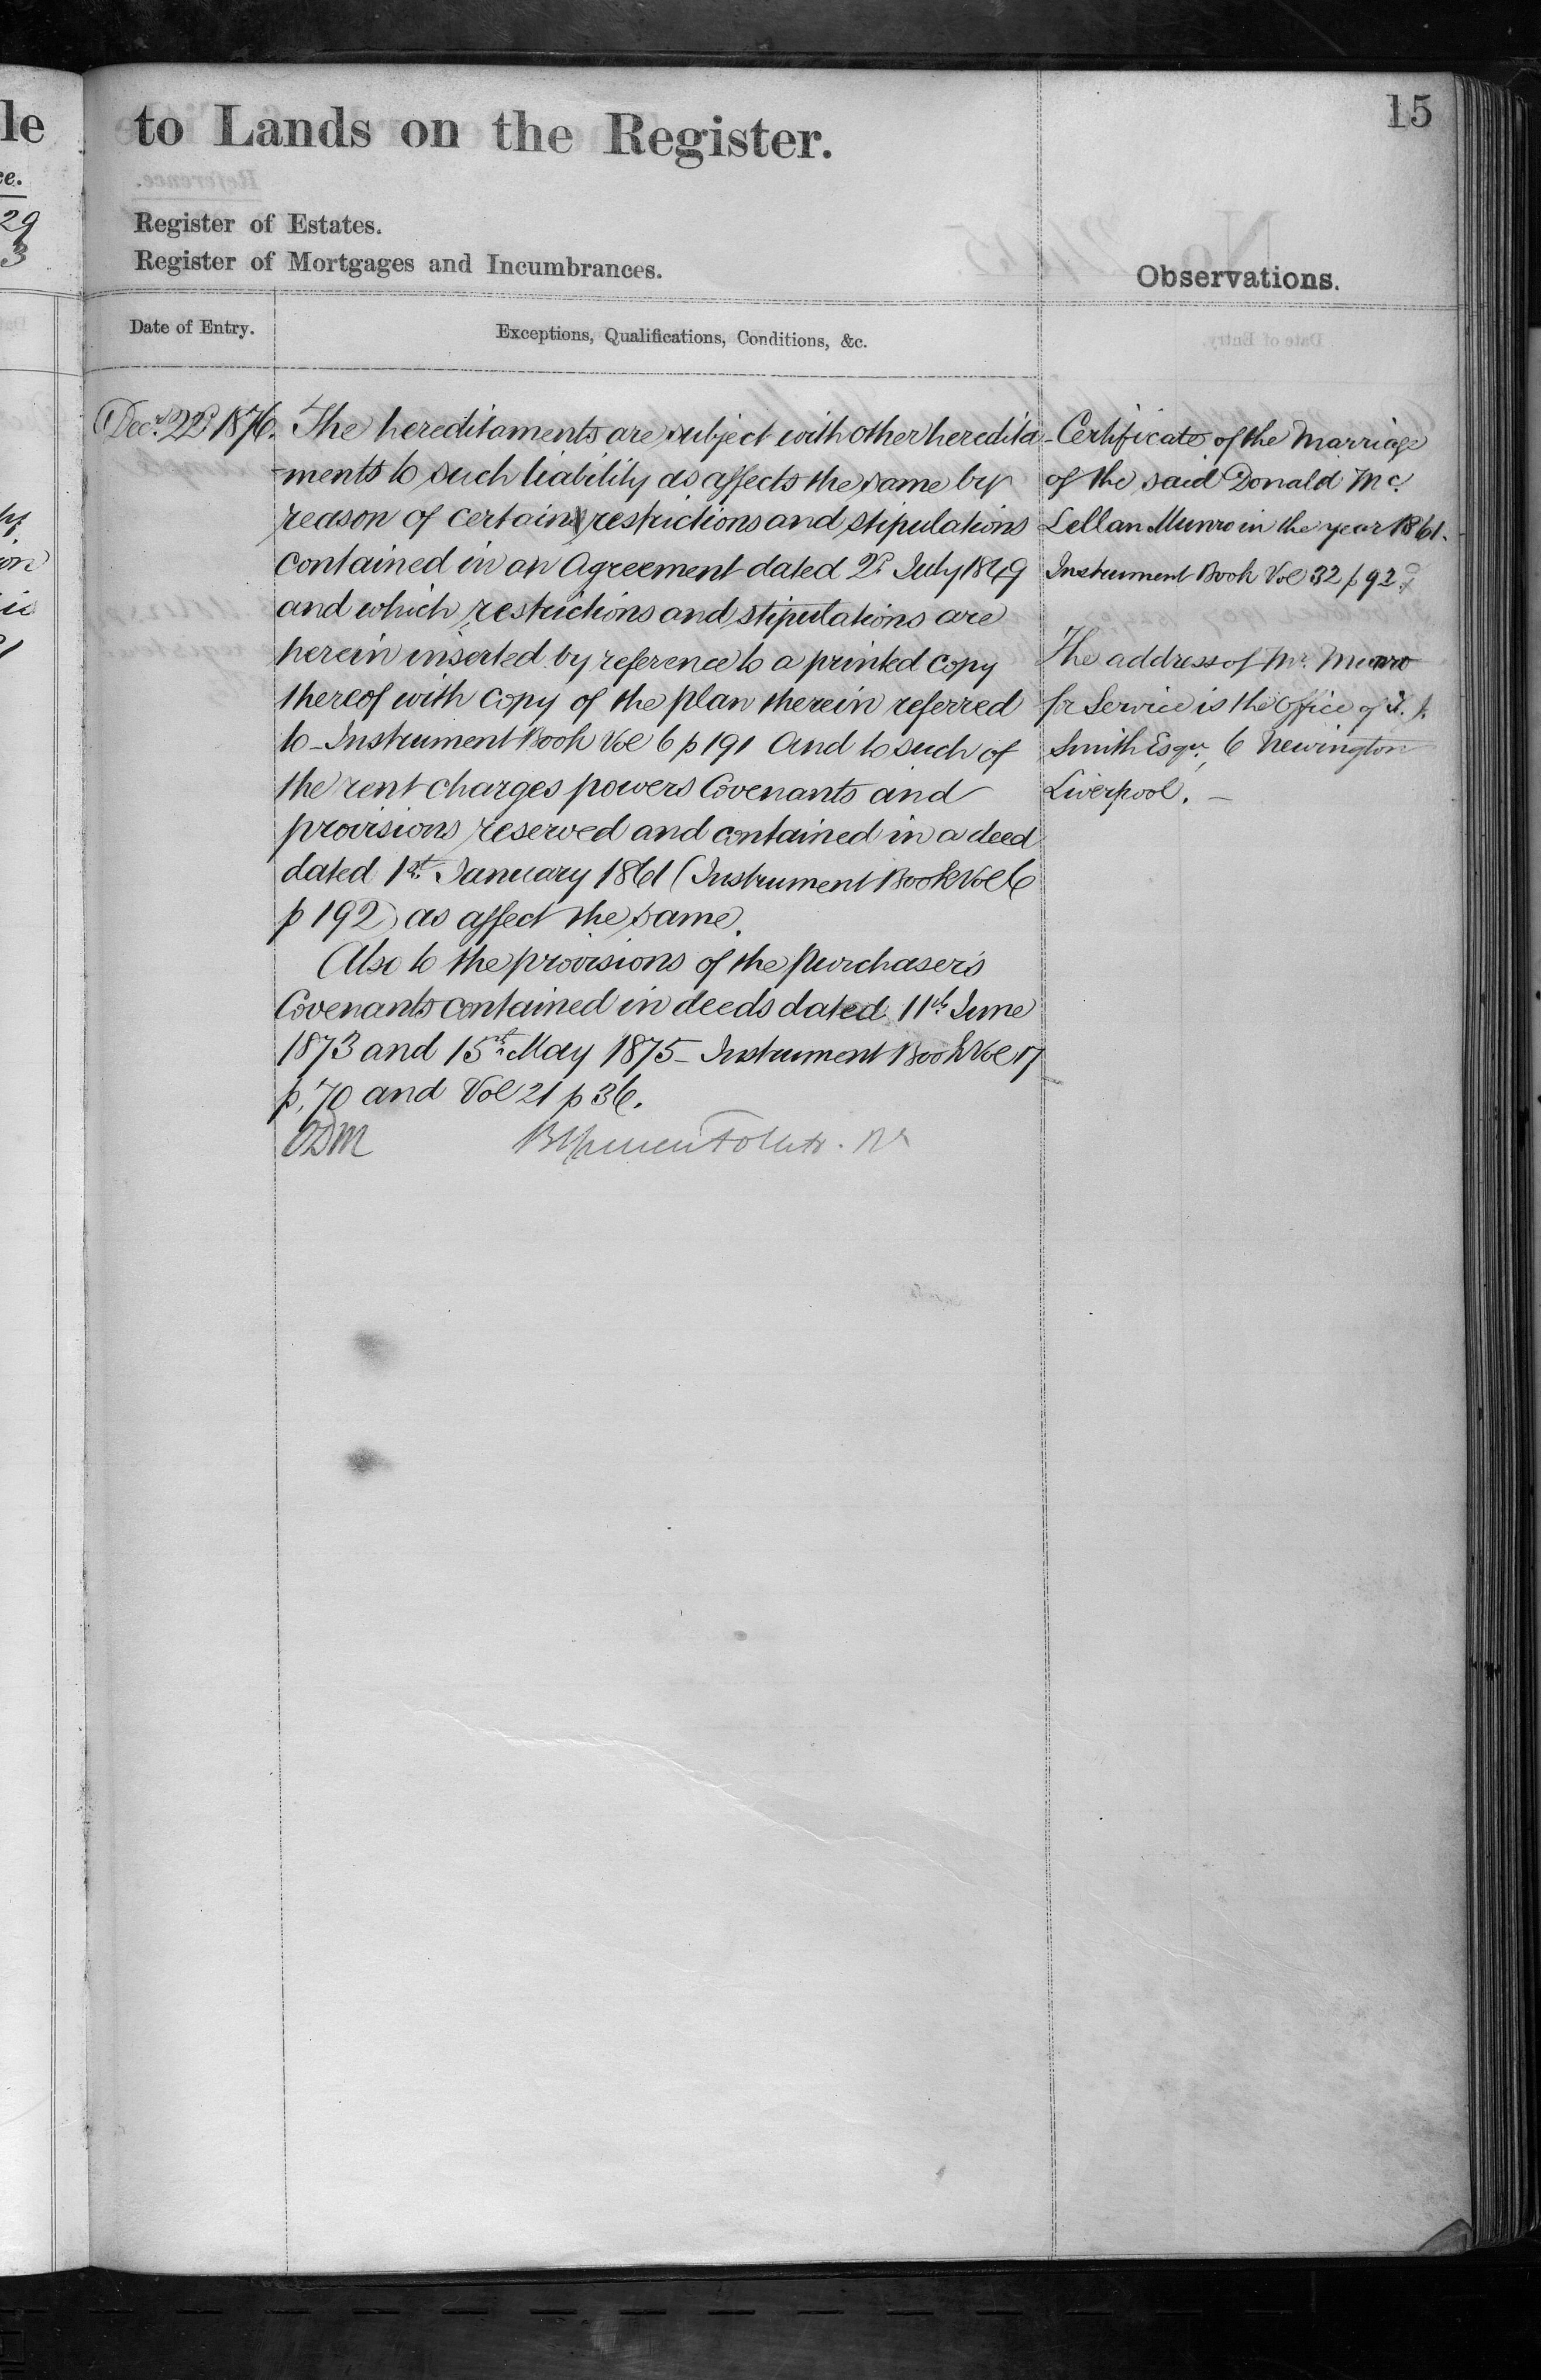 15
to Lands on the Register.
Register of Estates.
Register of Mortgages and Incumbrances.
Observations.
Date of Entry.
Exceptions, Qualifications, Conditions, &c.
Decr. 22d 1876.
The hereditaments are subject with other heredita
-ments to such liability as affects the same by
reason of certain restrictions and stipulations
contained in an Agreement dated 2d July 1849
and which restrictions and stipulations are
herein inserted by reference to a printed copy
thereof with copy of the plan therein referred
to - Instrument Book Vol 6 p 191 And to such of
the rent charges powers Covenants and
provisions reserved and contained in a deed
dated 1st. January 1861 (Instrument Book Vol 6
p 192) as affect the same.
Also to the provisions of the purchaser's
Covenants contained in deeds dated 11th June
1873 and 15th May 1875 - Instrument Book Vol 17
p. 70 and Vol 21 p 36.
Certificate of the Marriage
of the said Donald Mc.
Lellan Munro in the year 1861.
Instrument Book Vol 32 p 92
The address of Mr. Munro
for Service is the Office of
Smith Esqr., 6 Newington
Liverpool. -
le
29
3